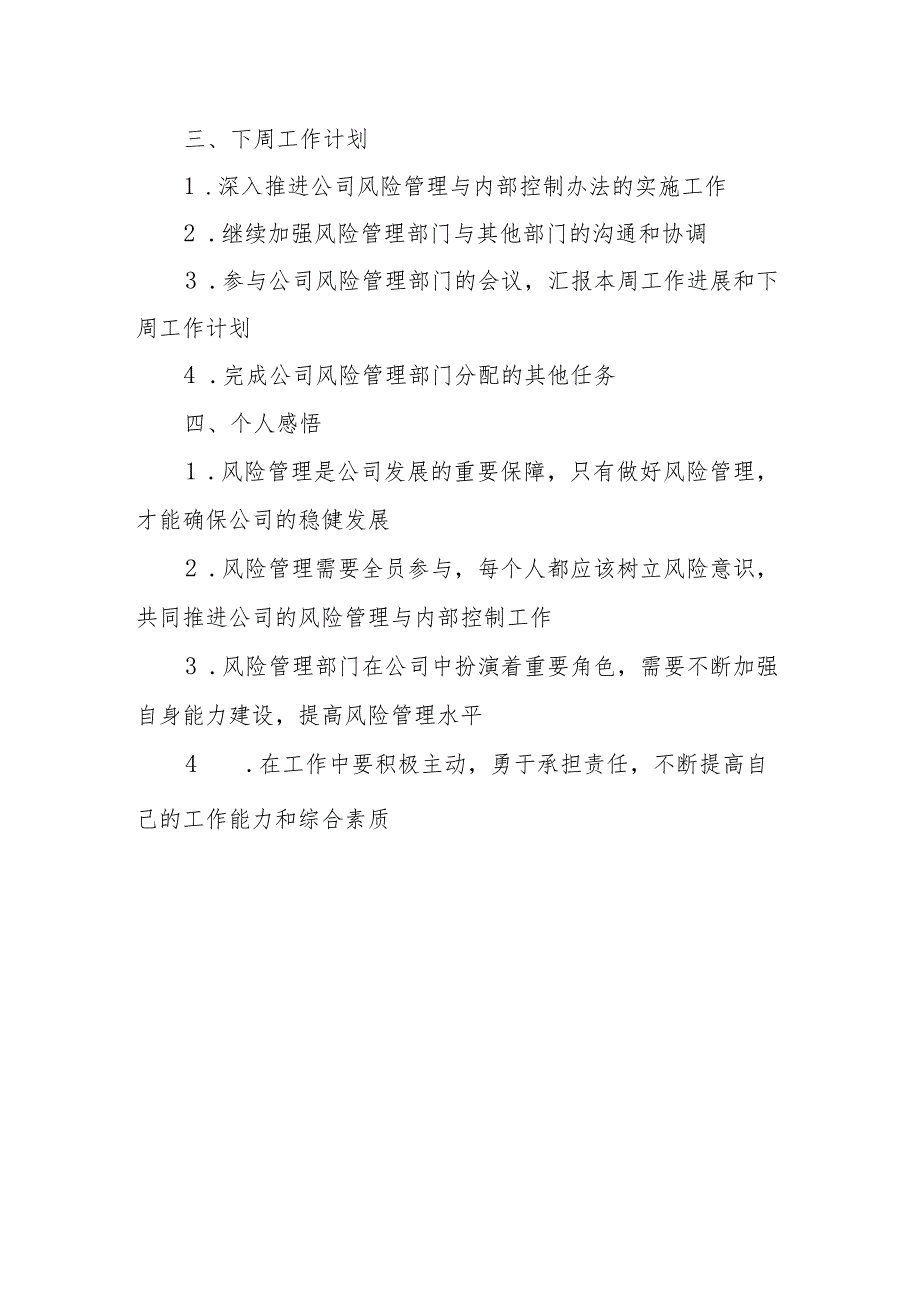 三、下周工作计划
1.深入推进公司风险管理与内部控制办法的实施工作
2.继续加强风险管理部门与其他部门的沟通和协调
3.参与公司风险管理部门的会议，汇报本周工作进展和下
周工作计划
4.完成公司风险管理部门分配的其他任务
四、个人感悟
1.风险管理是公司发展的重要保障，只有做好风险管理，
才能确保公司的稳健发展
2.风险管理需要全员参与，每个人都应该树立风险意识，
共同推进公司的风险管理与内部控制工作
3.风险管理部门在公司中扮演着重要角色，需要不断加强
自身能力建设，提高风险管理水平
4 .在工作中要积极主动，勇于承担责任，不断提高自
己的工作能力和综合素质